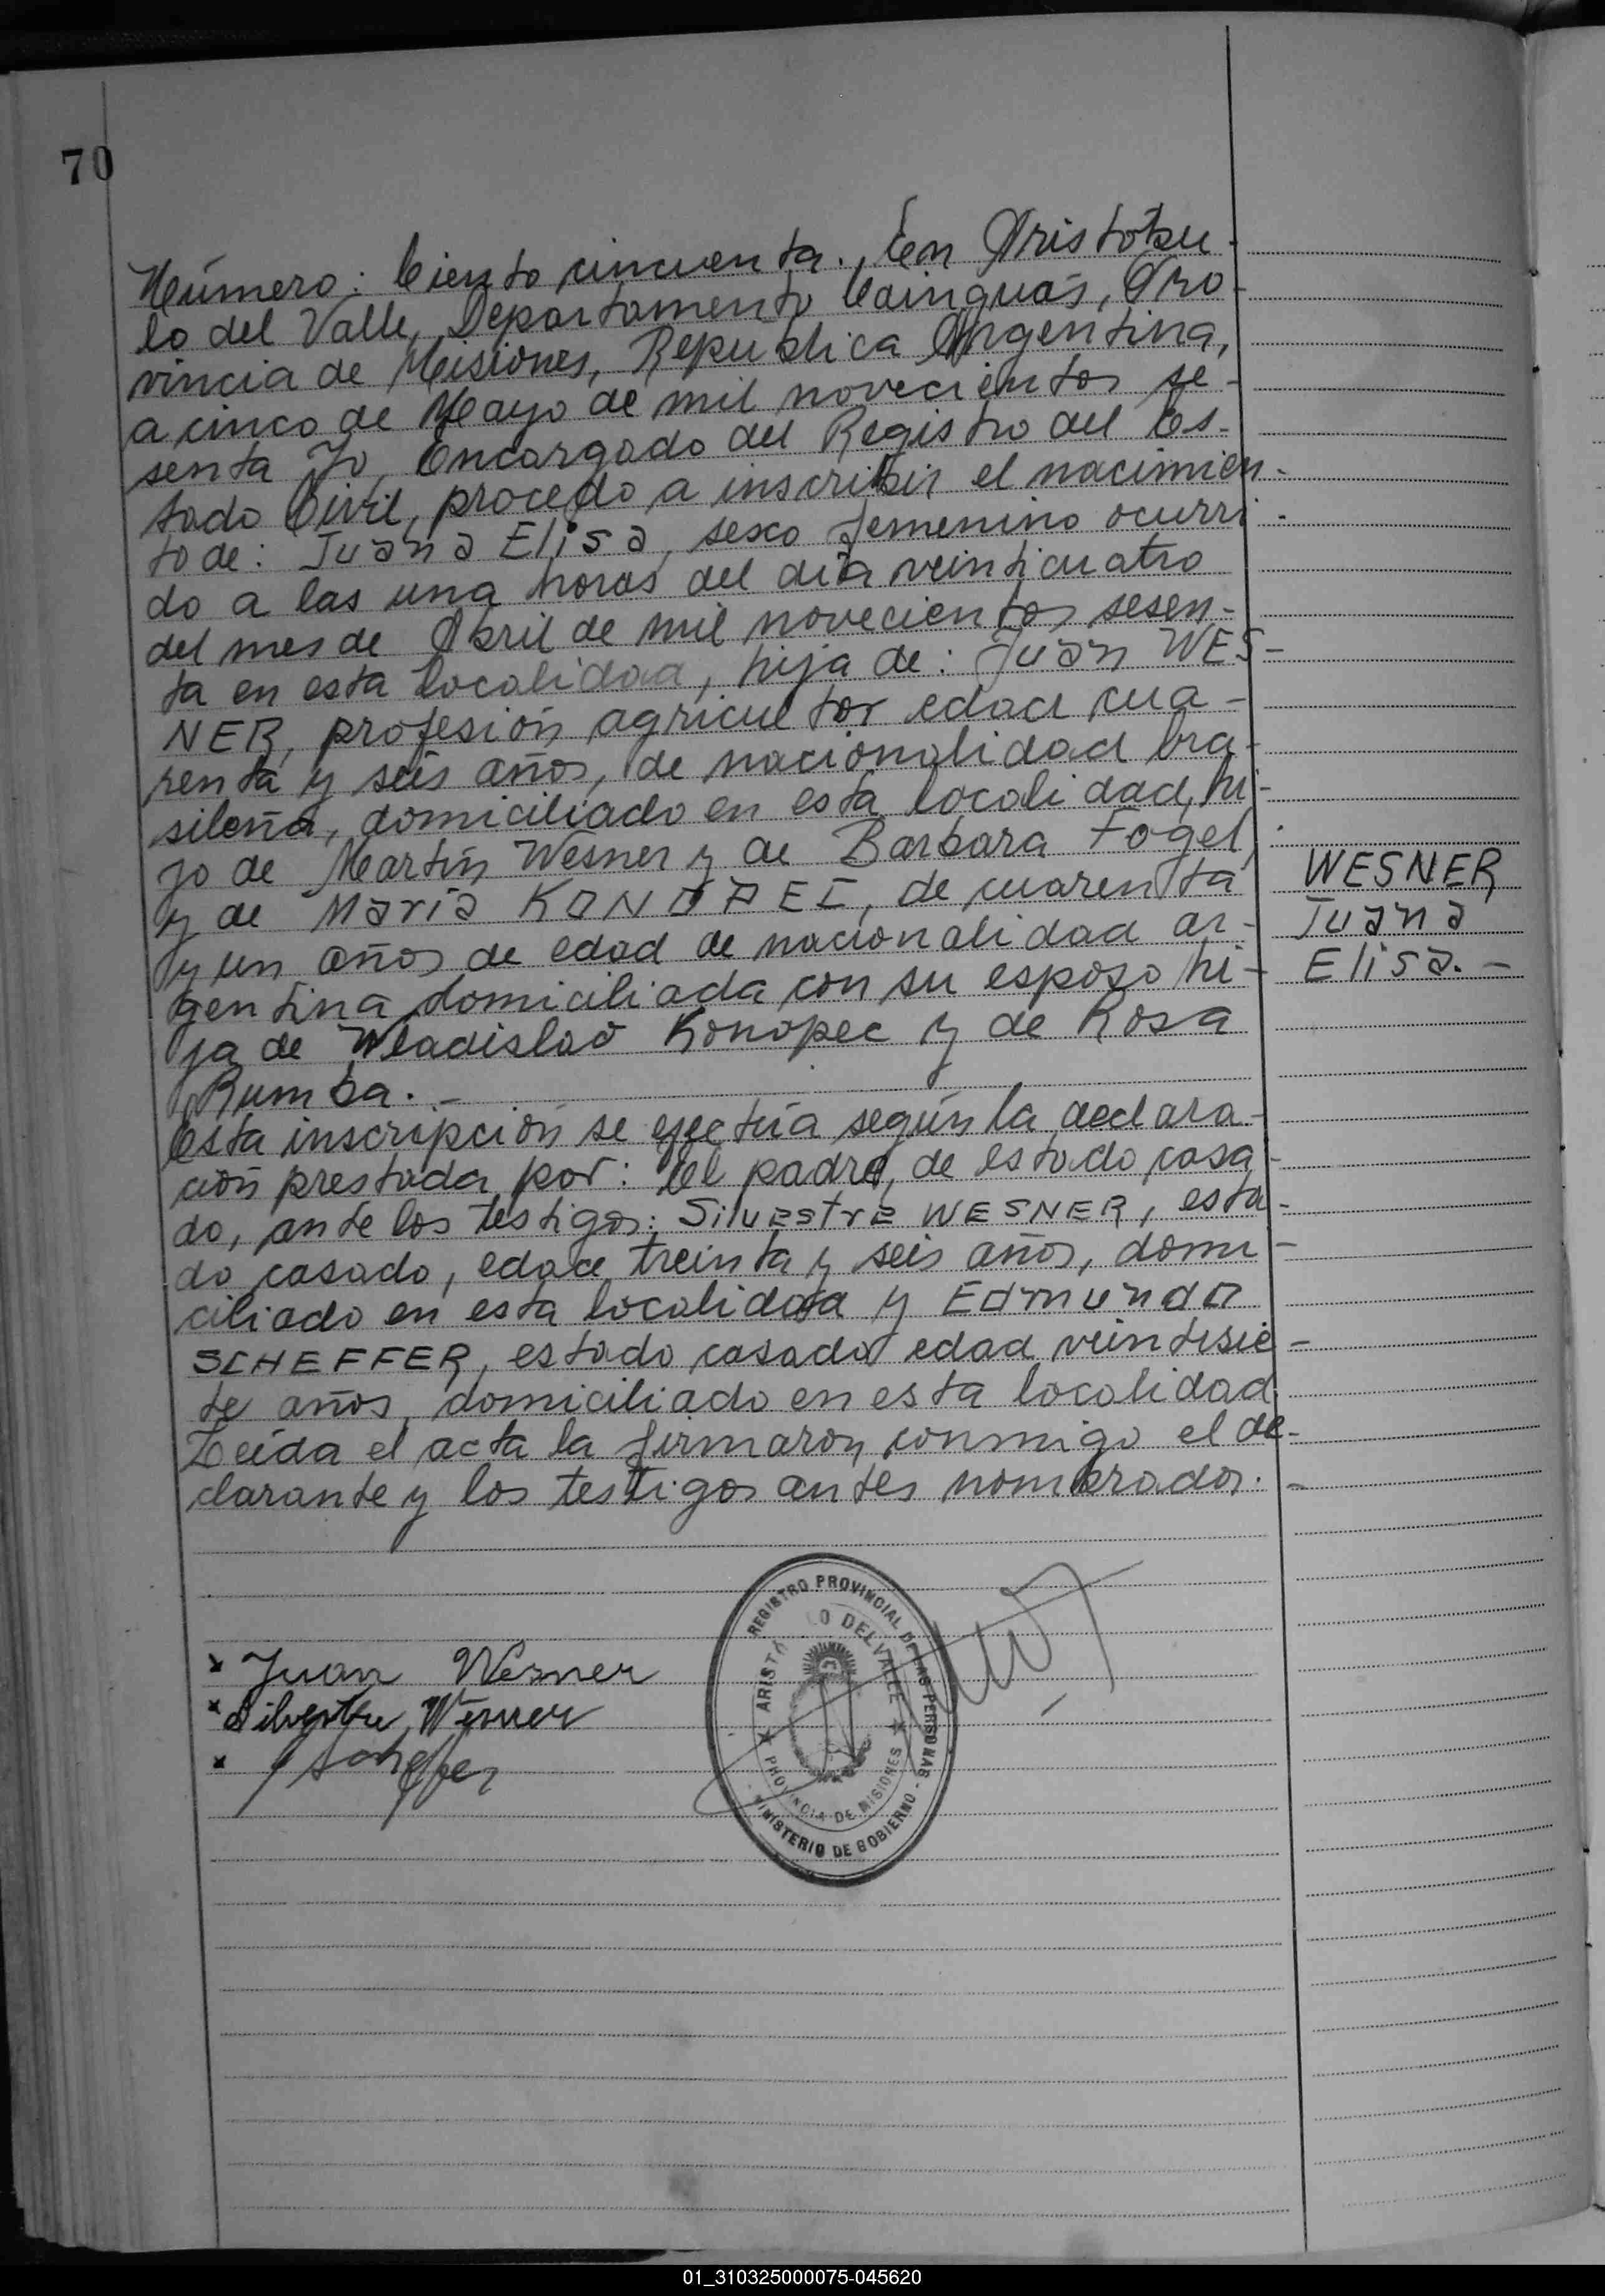 70
Número: Ciento cincuenta. En Aristóbu-
lo del Valle, Departamento Cainguás, Pro-
vincia de Misiones, República Argentina,
a cinco de Mayo de mil novecientos se-
senta Yo, Encargado del Registro del Es-
tado Civil, procedo a inscribir el nacimien-
to de: Juana Elisa, sexo femenino ocurri-
do a las una horas del día veinticuatro
del mes de Abril de mil novecientos sesen-
ta en esta localidad, hija de: Juan WES-
NER, profesión agricultor edad cua-
renta y seis años, de nacionalidad bra-
sileña, domiciliado en esta localidad, hi-
jo de Martín Wesner y de Barbara Fogel,
y de María KONOPEC, de cuarenta
y un años de edad de nacionalidad ar-
gentina domiciliada con su esposo hi-
ja de Wladislao Konopec y de Rosa
Rumba. -
Esta inscripción se efectúa según la declara-
ción prestada por: el padre, de estado casa-
do, ante los testigos: Silvestre WESNER, esta-
do casado, edad treinta y seis años, domi-
ciliado en esta localidad y Edmundo
SCHEFFER, estado casado edad veintisie-
te años, domiciliado en esta localidad
Leída el acta la firmaron conmigo el de-
clarante y los testigos antes nombrados. -
WESNER
Juana
Elisa. -
x Juan Wesner
x Silvestre Wesner
x Scheffer
REGISTRO PROVINCIAL DE LAS PERSONAS - MINISTERIO DE GOBIERNO
ARISTO LO DEL VALLE
PROVINCIA DE MISIONES
01_310325000075-045620